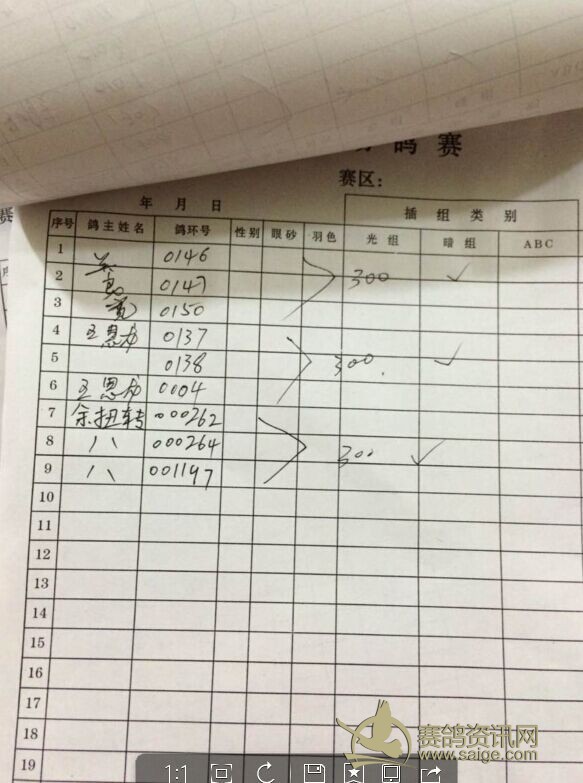 鸽赛
赛区：
年 月 日
插组类别
序号 鸽主姓名 鸽环号 性别 眼砂 羽色 光组 暗组 ABC
1 0146
2 0147 300 ✓
3 0150
4 王恩龙 0137
5 0138 300. ✓
6 王恩龙 0004
7 余扭转 000262
8 八 000264 300 ✓
9 八 001197
10
11
12
13
14
15
16
17
18
19
赛鸽资讯网
www.saige.com
1:1